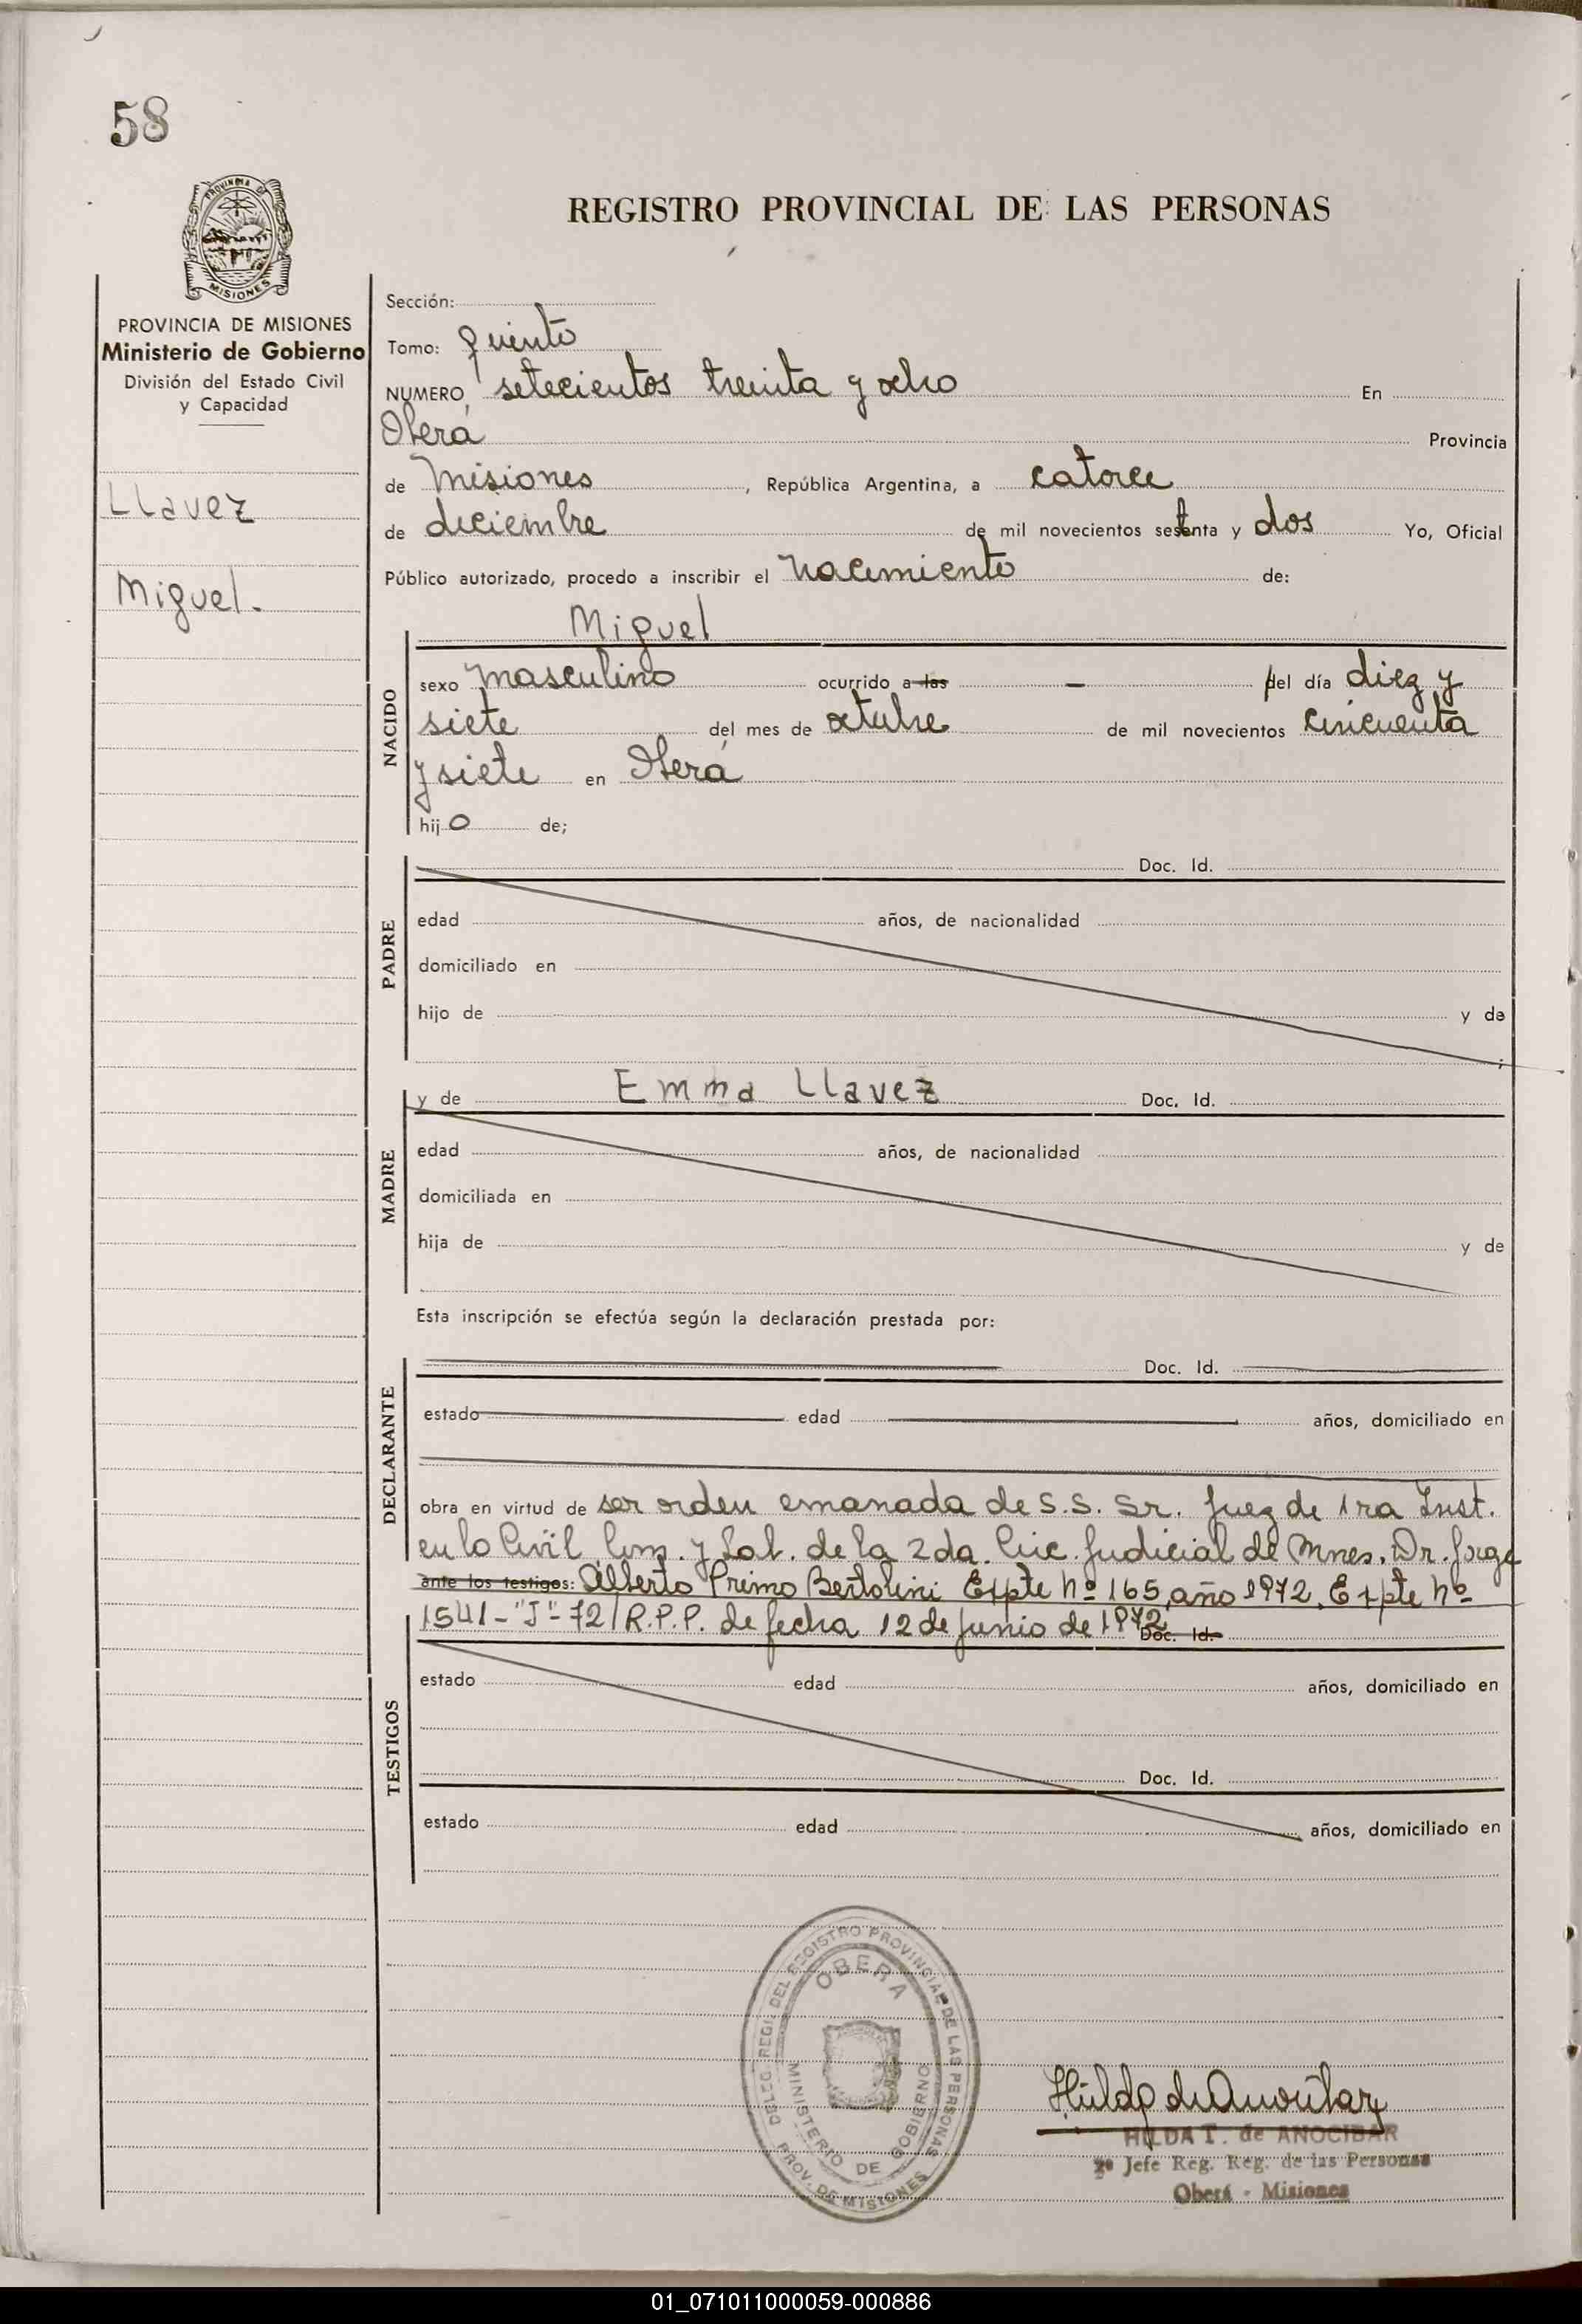 58
REGISTRO PROVINCIAL DE LAS PERSONAS
PROVINCIA DE MISIONES
Ministerio de Gobierno
División del Estado Civil
y Capacidad
Llavez
Miguel.
Sección:
Tomo: quinto
NUMERO, setecientos treinta y ocho En
Oberá Provincia
de Misiones, República Argentina, a catorce
de diciembre de mil novecientos setenta y dos Yo, Oficial
Público autorizado, procedo a inscribir el nacimiento de:
Miguel
NACIDO
sexo masculino ocurrido a las — del día diez y
siete del mes de octubre de mil novecientos cincuenta
y siete en Oberá
hijo de;
PADRE
Doc. Id.
edad años, de nacionalidad
domiciliado en
hijo de y de
;
MADRE
y de Emma Llavez Doc. Id.
edad años, de nacionalidad
domiciliada en
hija de y de
Esta inscripción se efectúa según la declaración prestada por:
DECLARANTE
Doc. Id.
estado edad años, domiciliado en
obra en virtud de ser orden emanada de S.S. Sr. Juez de 1ra Inst.
en lo Civil Com. y Lab. de la 2da. Circ. Judicial de Mnes. Dr. Jorge
ante los testigos: Alberto Primo Bertolini Expte Nº 165, año 1972. Expte Nº
1541-"J"-72/R.P.P. de fecha 12 de Junio de 1972 Doc. Id.
TESTIGOS
estado edad años, domiciliado en
Doc. Id.
estado edad años, domiciliado en
DELEG. REG. DEL REGISTRO PROVINCIAL DE LAS PERSONAS
OBERA
MINISTERIO DE GOBIERNO
PROV. DE MISIONES
Hilda de Anocibar
HILDA T. de ANOCIBAR
2º Jefe Reg. Reg. de las Personas
Oberá - Misiones
01_071011000059-000886